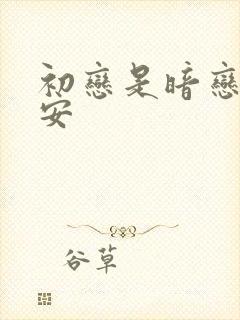 初戀是暗戀
安
谷草